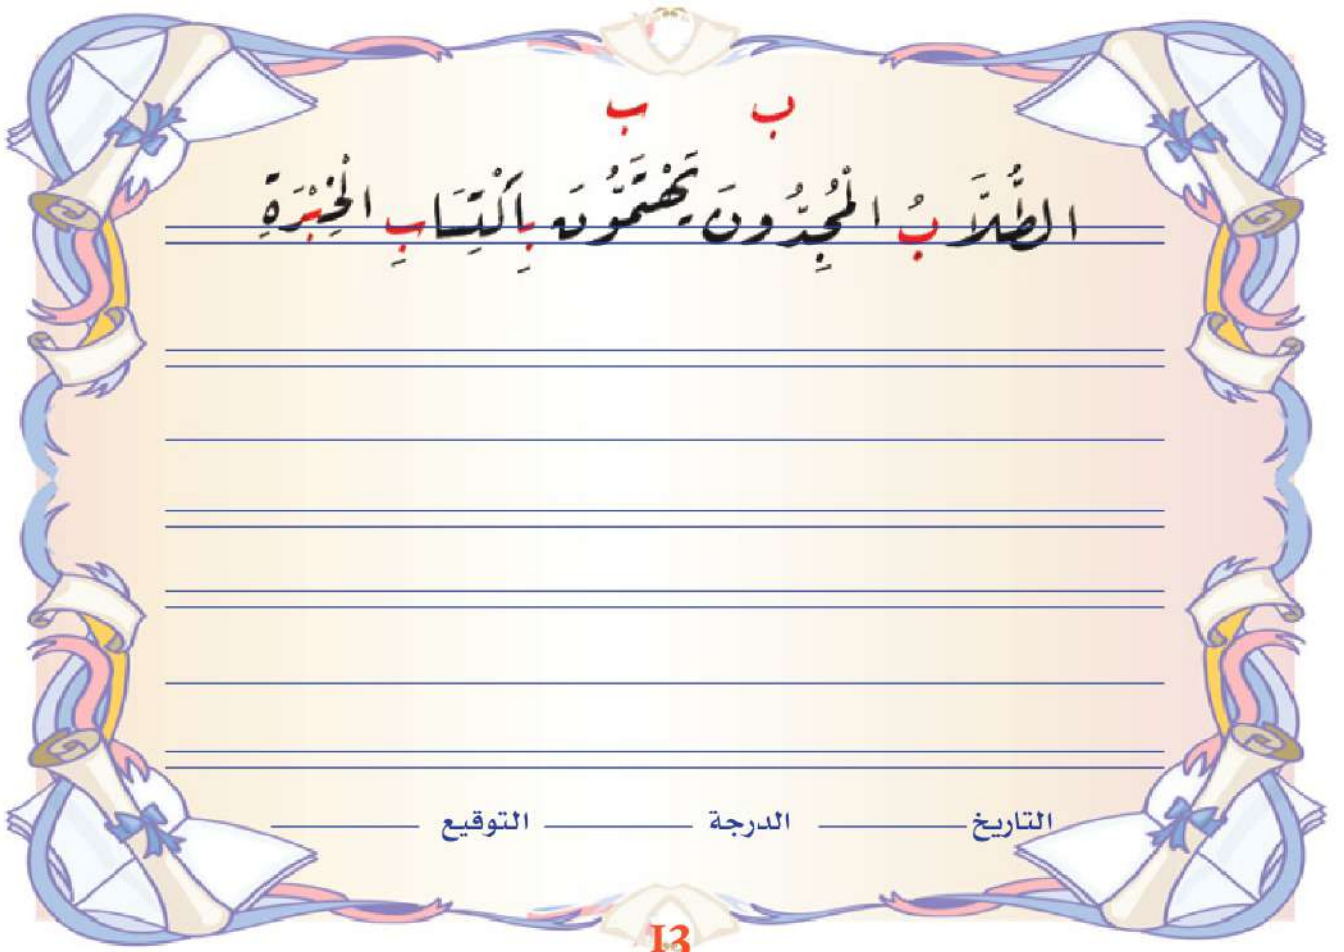 ب ب
الطُّلَّابُ الْمُجِدُّونَ يَهْتَمُّونَ بِاكْتِسَابِ الْخِبْرَةِ
التاريخ الدرجة التوقيع
13